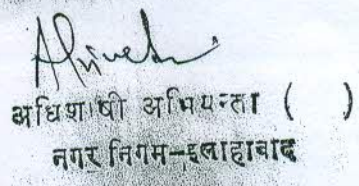 अधिशाषी अभियन्ता (      )
नगर निगम-इलाहाबाद